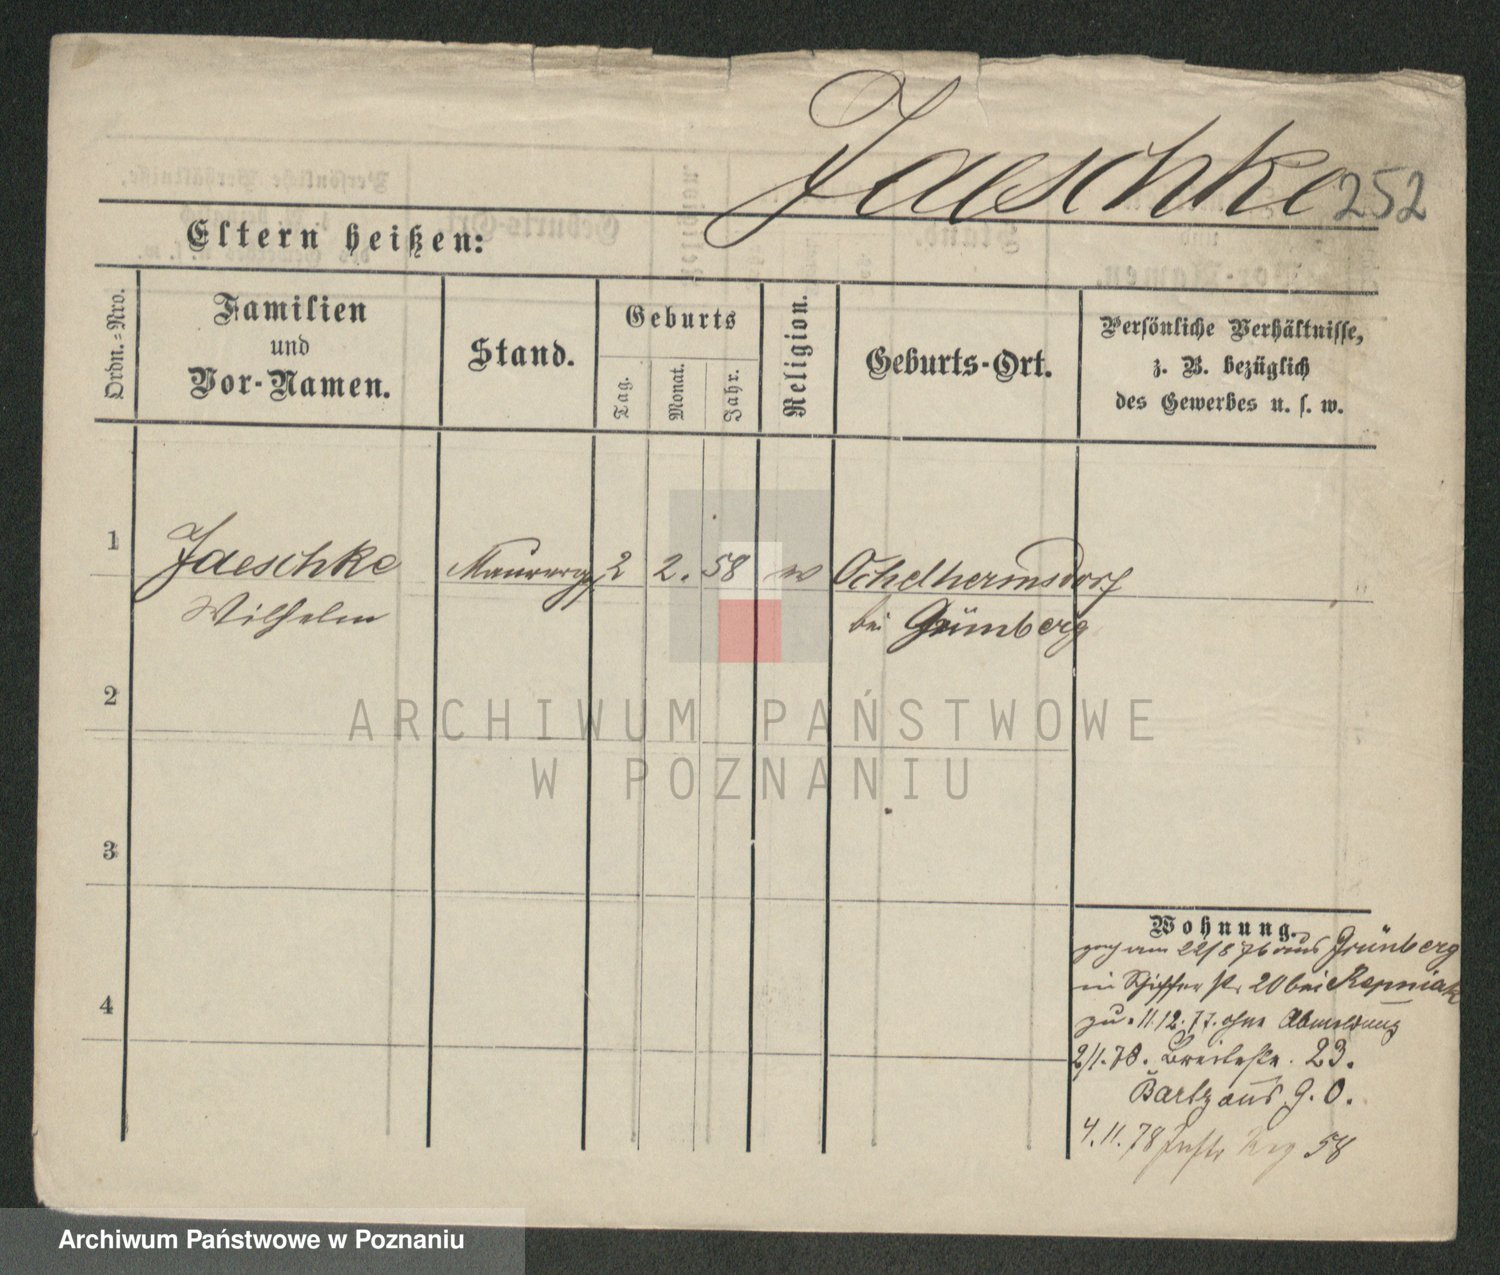 Jaeschke 252
Eltern heißen:
Ordn.=Nro.
Familien
und
Vor-Namen.
Stand.
Geburts
Tag.
Monat.
Jahr.
Religion.
Geburts-Ort.
Persönliche Verhältnisse,
z. B. bezüglich
des Gewerbes u. s. w.
1
Jaeschke
Wilhelm
2 2. 58
Ochelhermsdorf
bei Grünberg
2
3
4
Wohnung.
am 22/8 76 aus Grünberg
in Schifferstr 20 bei Repniak
11.12.77. ohne Abmeldung
2/1.78. Breitestr. 23.
Bartz aus G. O.
4.11.78 58
ARCHIWUM PAŃSTWOWE
W POZNANIU
Archiwum Państwowe w Poznaniu